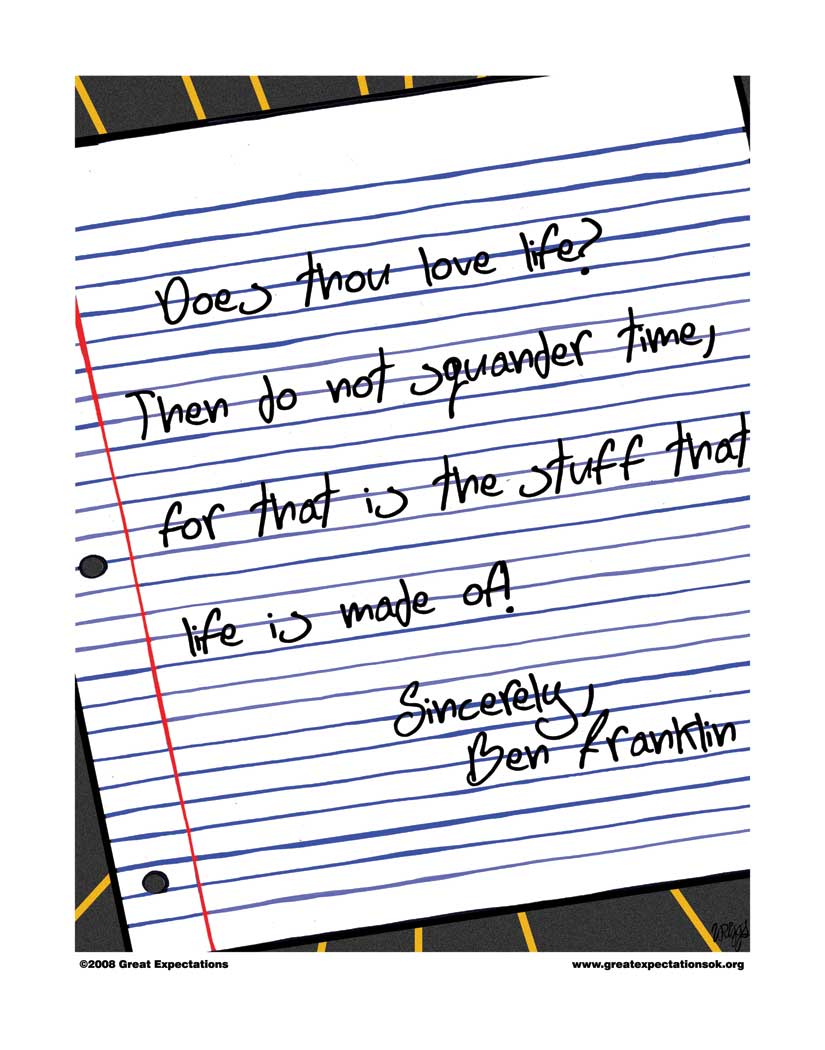 Does thou love life?
Then do not squander time,
for that is the stuff that
life is made of!
Sincerely,
Ben Franklin
©2008 Great Expectations
www.greatexpectationsok.org